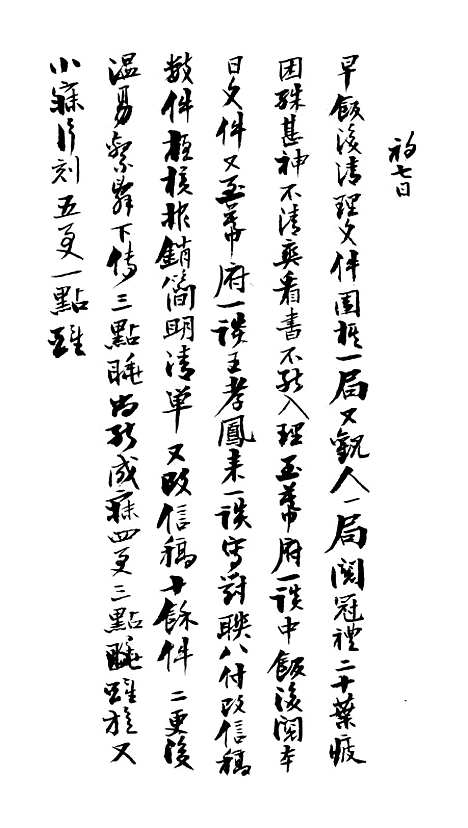 初七日
早飯後清理文件圍棋一局又觀人一局閱冠禮二十葉疲
困殊甚神不清爽看書不能入理至幕府一談中飯後閱本
日文件又至幕府一談王孝鳳來一談寫對聯八付改信稿
數件極核報銷簡明清單又改信稿十餘件二更後
溫易繫辭下傳三點睡尚能成寐四更三點醒旋又
小寐片刻五更一點醒